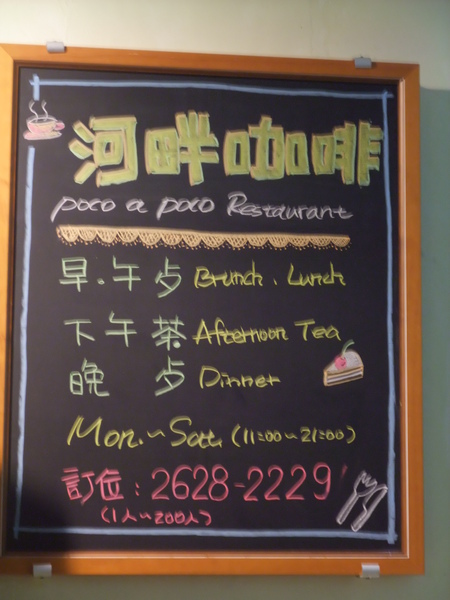 河畔咖啡
poco a poco Restaurant
早.午歺 Brunch. Lunch
下午茶 Afternoon Tea
晚 歺 Dinner
Mon.~Sat. (11:00~21:00)
訂位:2628-2229
(1人~200人)